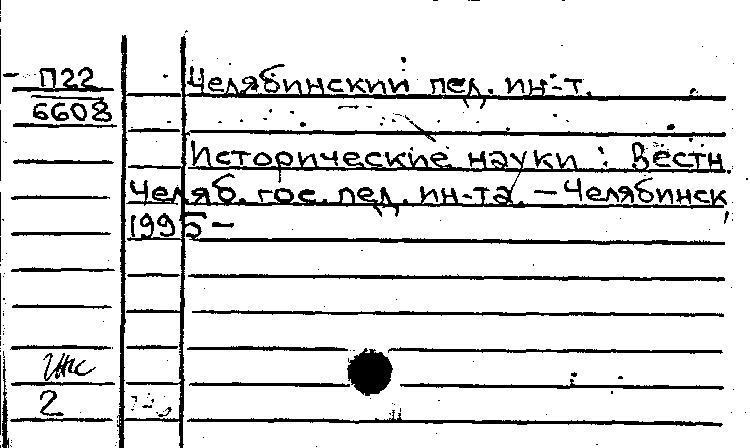 П22
6608
Челябинский пед. ин-т.
Исторические науки : Вестн.
Челяб. гос. пед. ин-та. — Челябинск,
1995 —
2